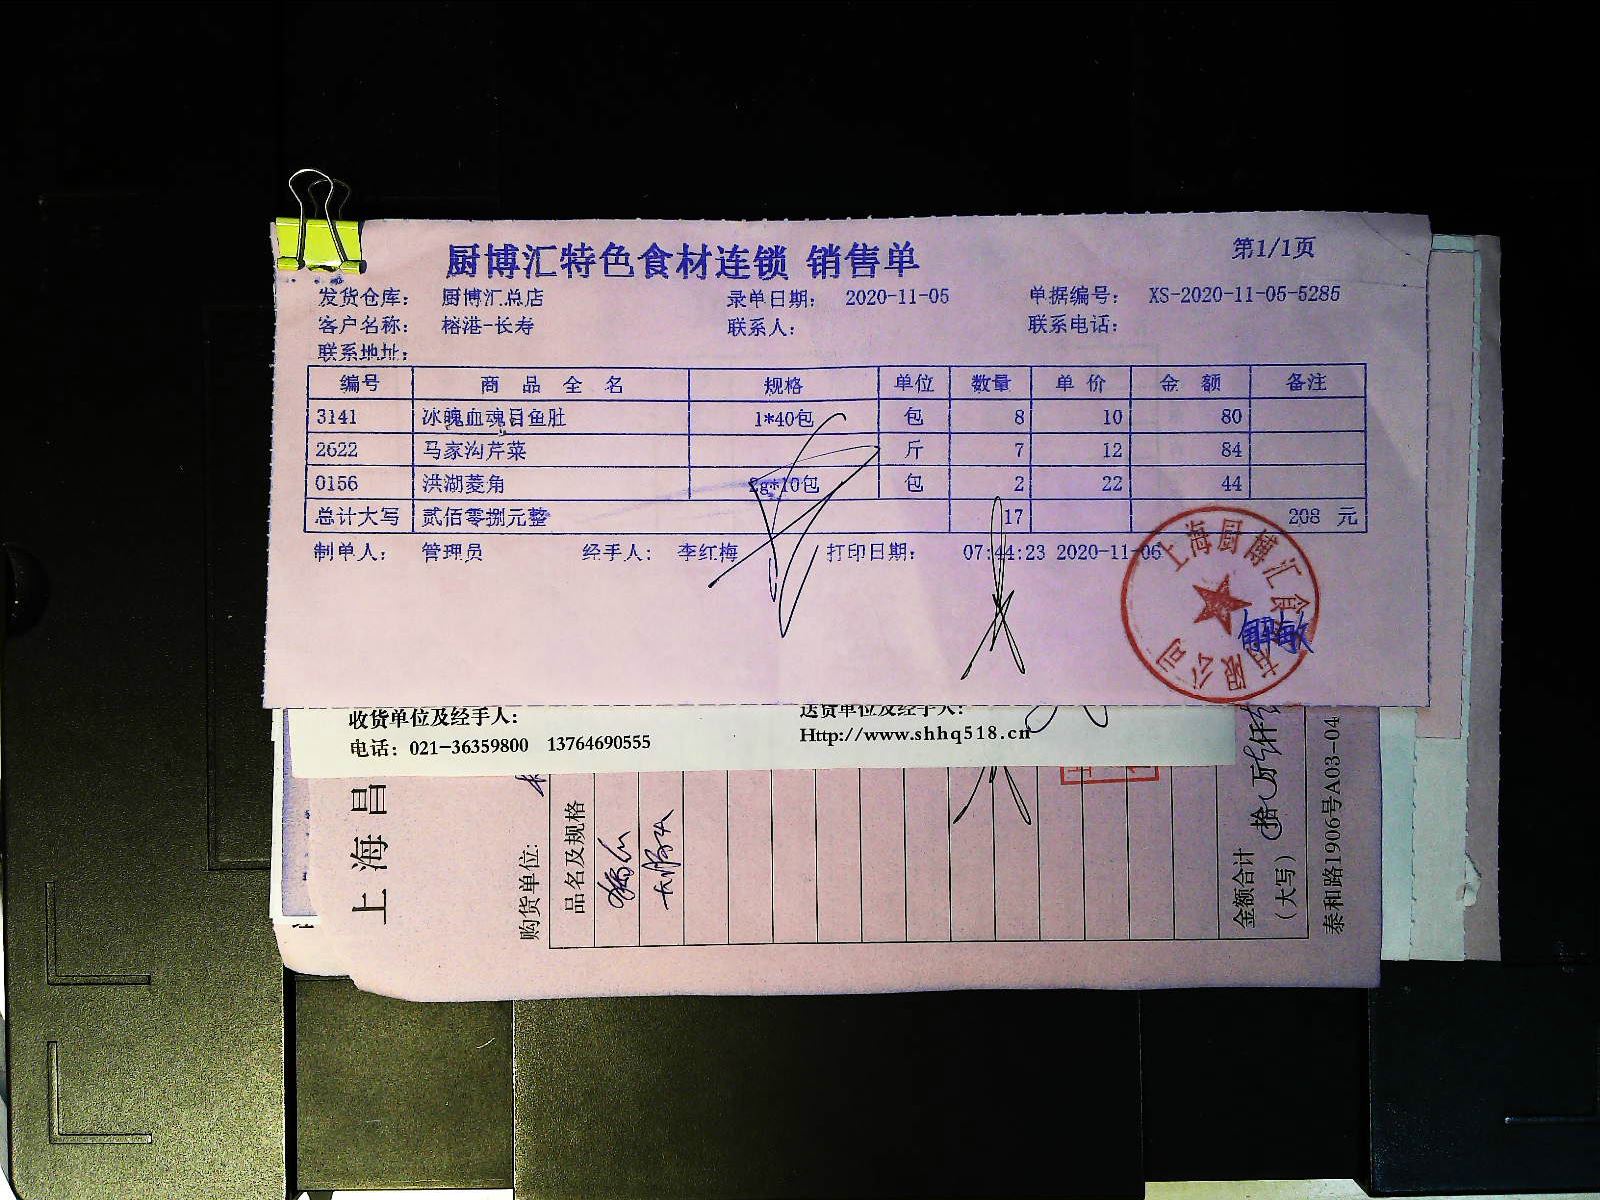 厨博汇特色食材连锁 销售单
第1/1页
发货仓库： 厨博汇总店 录单日期： 2020-11-05 单据编号： XS-2020-11-05-5285
客户名称： 榕港-长寿 联系人： 联系电话：
联系地址：
编号 商品全名 规格 单位 数量 单价 金额 备注
3141 冰魄血魂目鱼肚 1*40包 包 8 10 80
2622 马家沟芹菜 斤 7 12 84
0156 洪湖菱角 2g*10包 包 2 22 44
总计大写 贰佰零捌元整 17 208 元
制单人： 管理员 经手人： 李红梅 打印日期： 07:44:23 2020-11-06
上海厨博汇食材有限公司
解敏
收货单位及经手人： 送货单位及经手人：
电话：021-36359800 13764690555 Http://www.shhq518.cn
上海昌
购货单位：
品名及规格
金额合计
（大写） 拾 万 仟
泰和路1906号A03-04